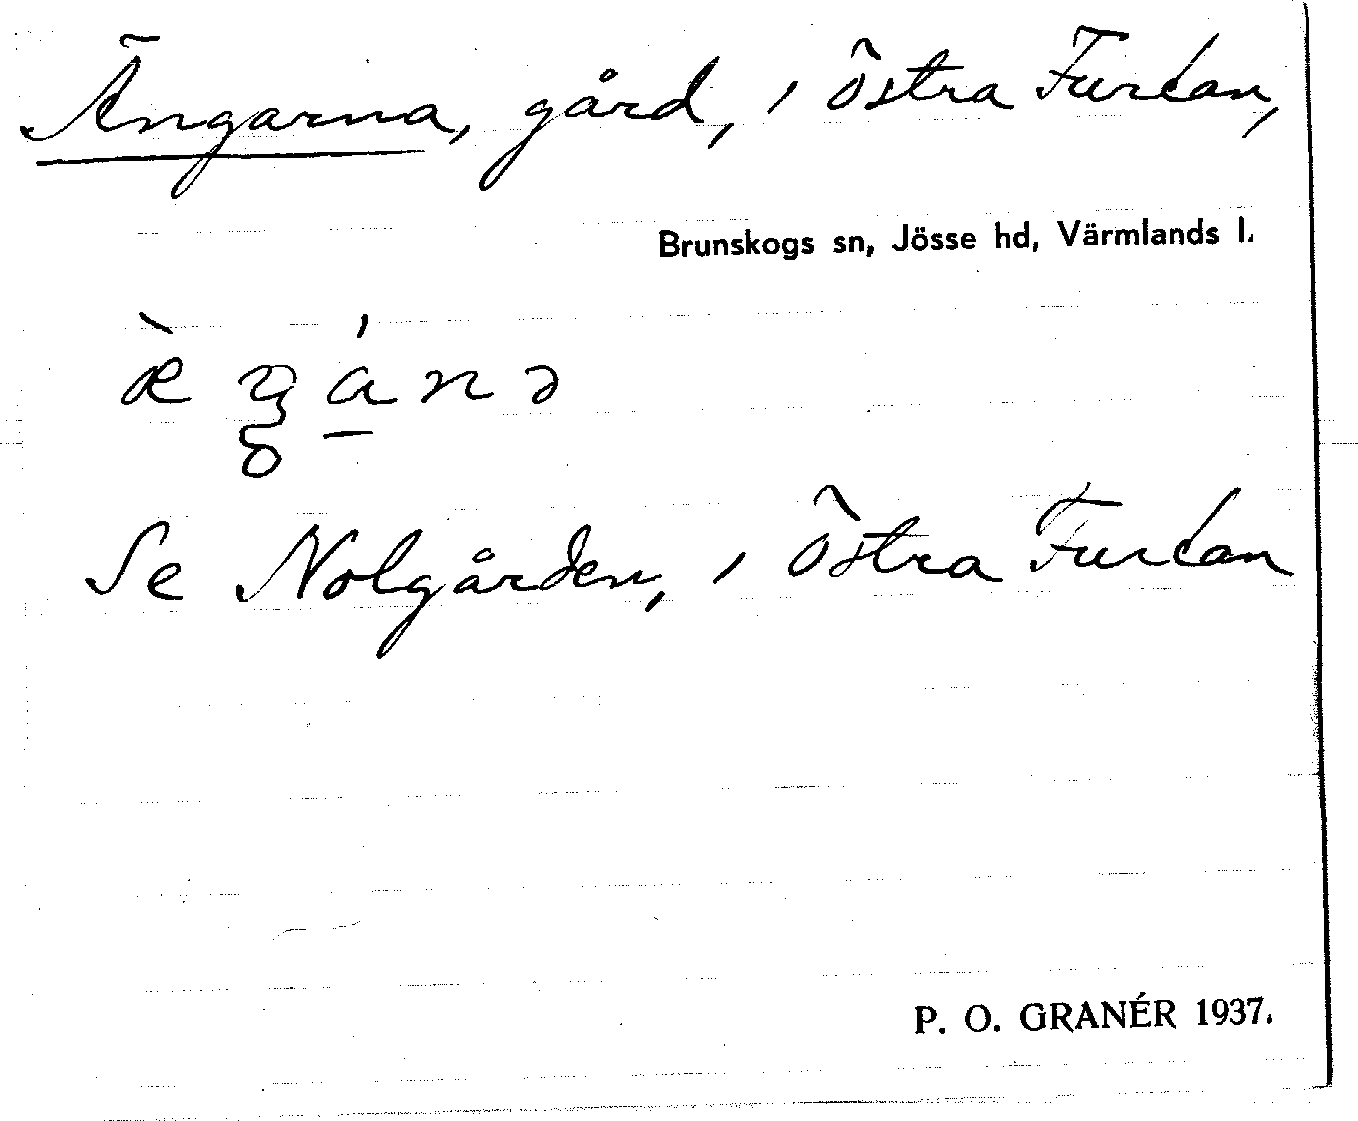 Ängarna, gård, i Östra Furtan,
Brunskogs sn, Jösse hd, Värmlands l.
Se Nolgården, i Östra Furtan
P. O. GRANÉR 1937.